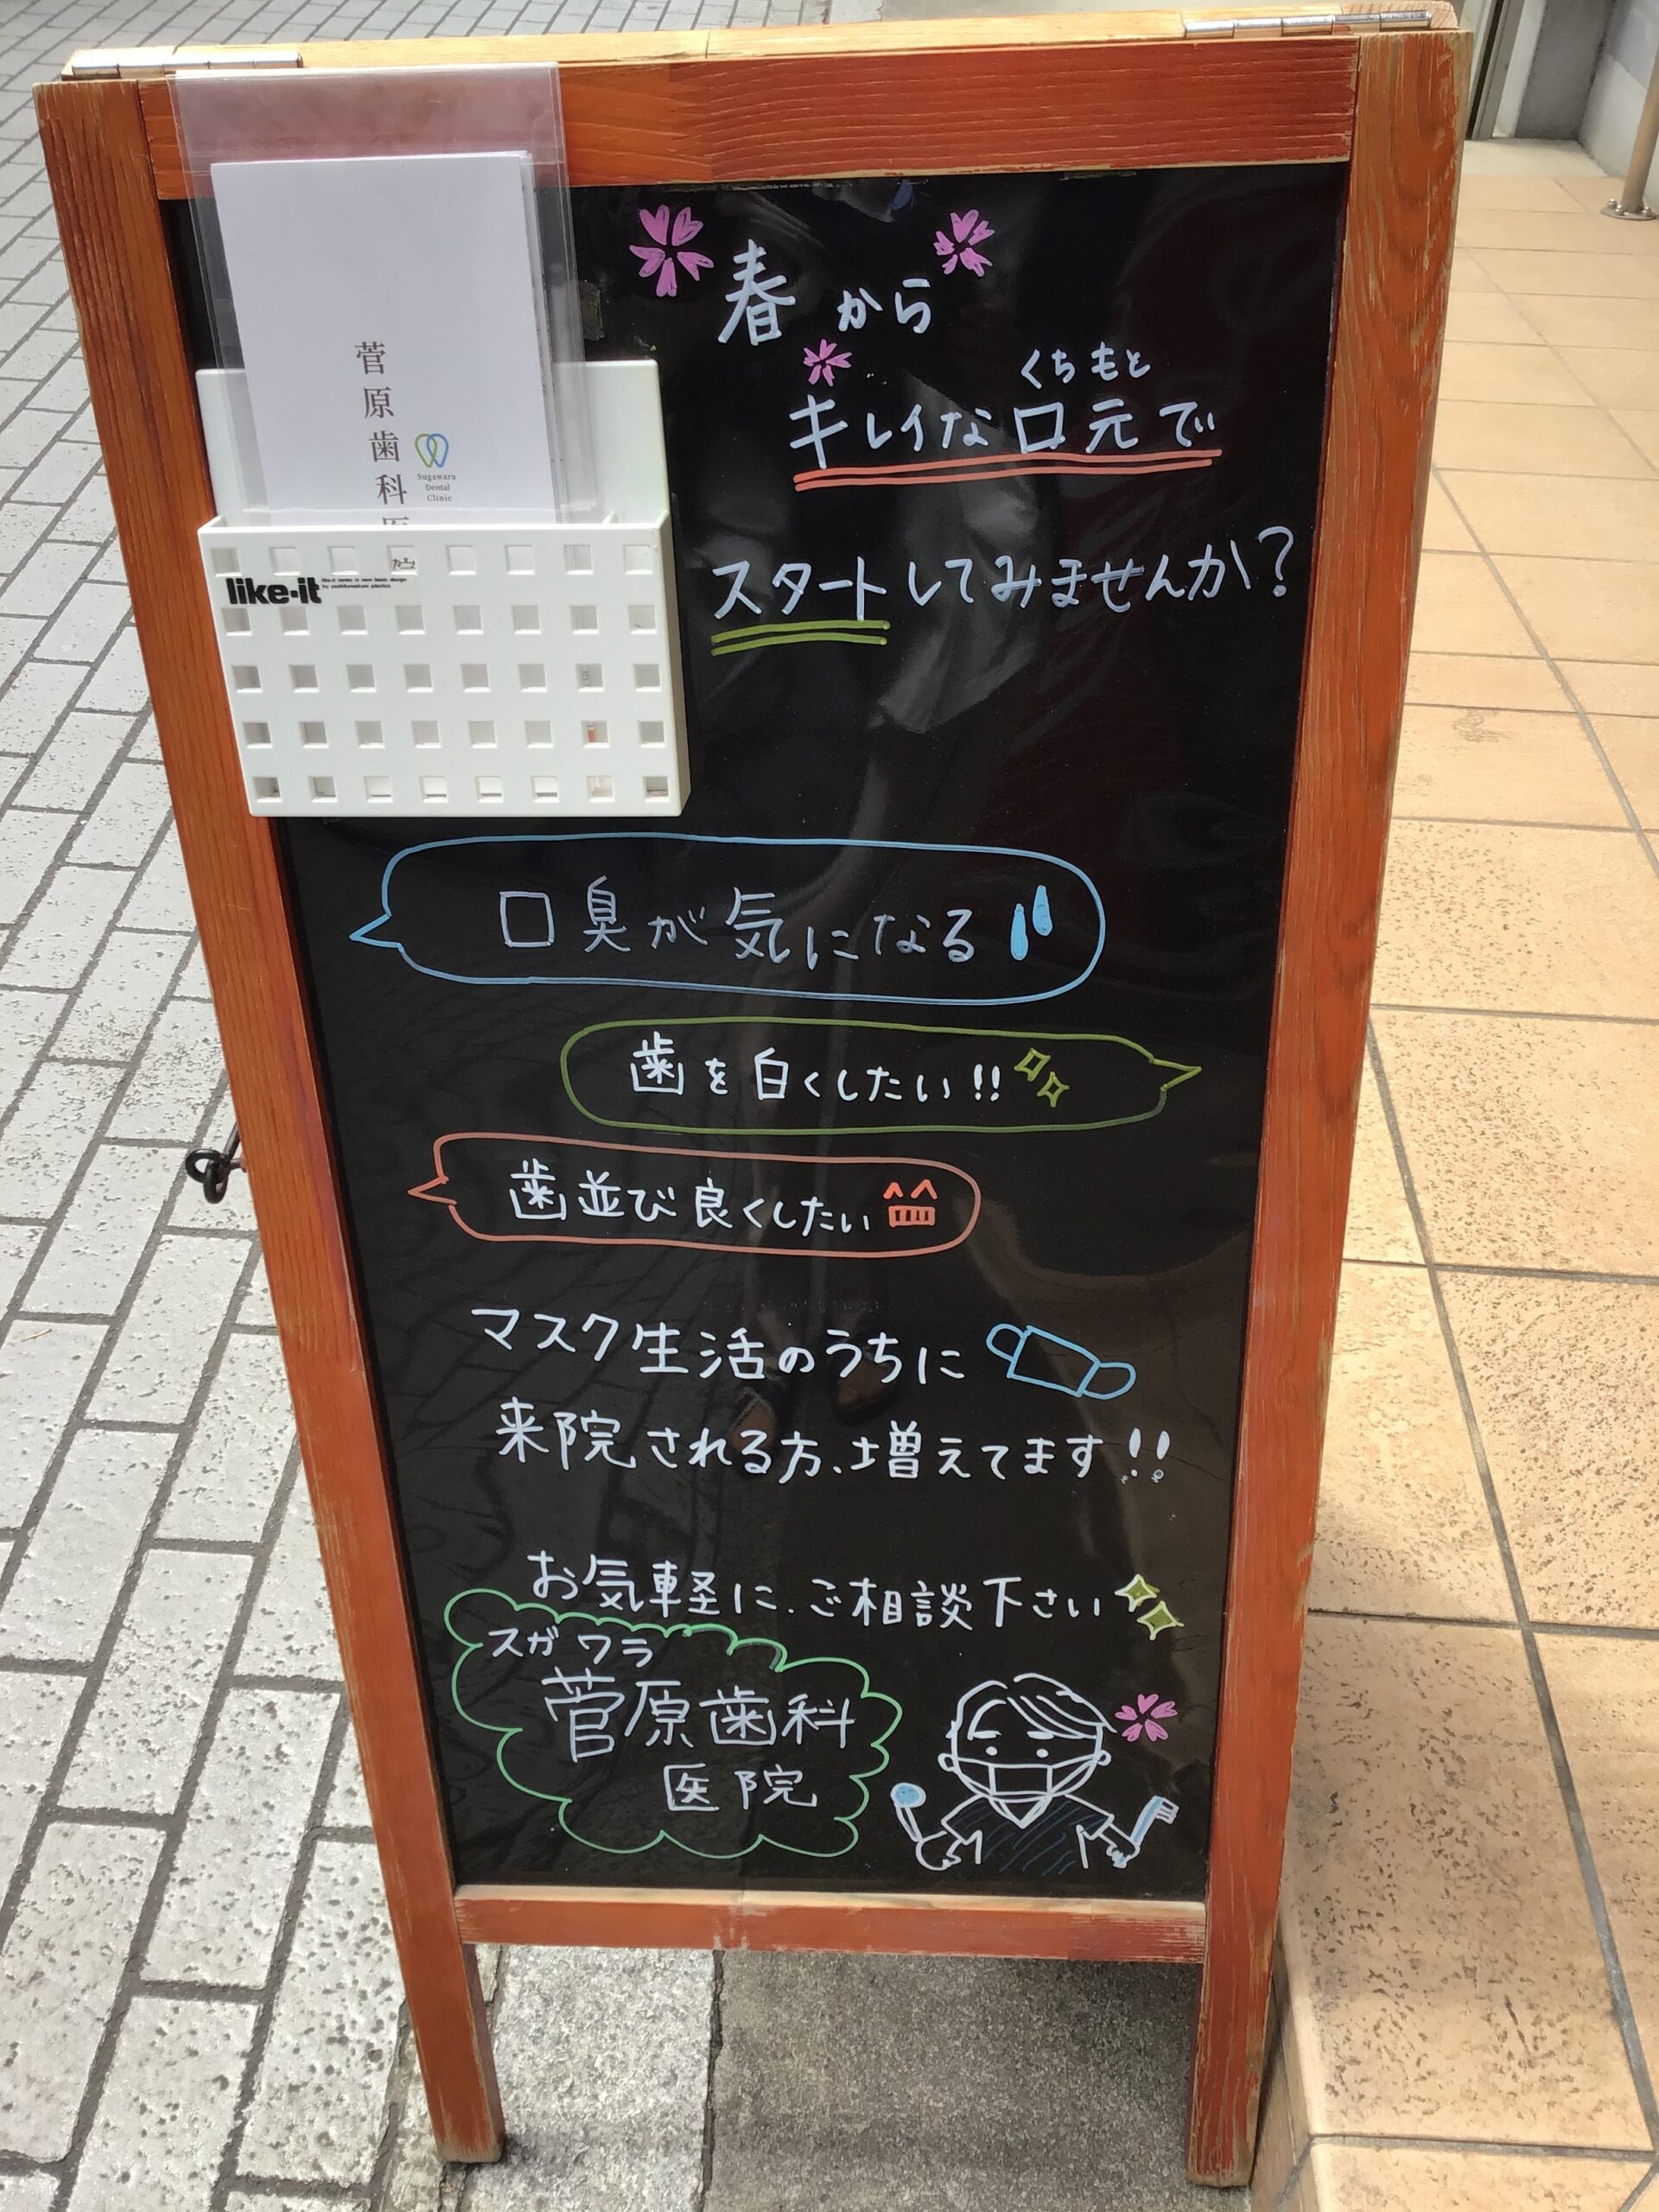 春から
くちもと
キレイな口元で
スタートしてみませんか?
菅原歯科医
Sugawara
Dental
Clinic
like-it
口臭が気になる
歯を白くしたい!!
歯並び良くしたい
マスク生活のうちに
来院される方、増えてます!!
お気軽に、ご相談下さい
スガワラ
菅原歯科
医院